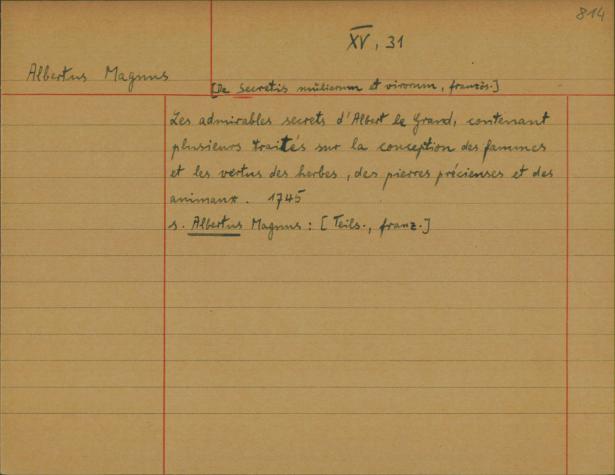 814
XV, 31
Albertus Magnus
[De secretis mulierum et virorum, francés.]
Les admirables secrets d'Albert le Grand, contenant
plusieurs traités sur la conception des femmes
et les vertus des herbes, des pierres précieuses et des
animaux. 1745
s. Albertus Magnus: [Teils., franz.]